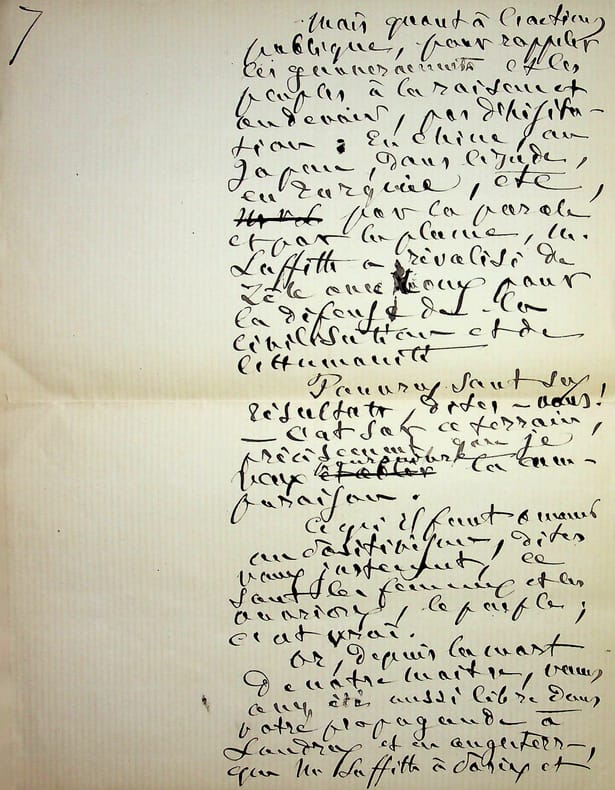 7
Mais quant à l'action
publique, pour rappeler
les gouvernements et les
peuples à la raison et
au devoir, par d'hésita-
tion : En Chine, au
Japon, dans l'Inde,
en Turquie, etc,
par la parole
et par la plume, M.
Laffitte a rivalisé de
zèle avec vous pour
la défense de la
civilisation et de
l'Humanité
Pauvres sont ses
résultats, dites-vous!
— C'est sur ce terrain,
précisément que je
veux poursuivre la com-
paraison.
Ce qu'il faut
au Positivisme, dites
vous justement, ce
sont les femmes et les
ouvriers, le peuple ;
c'est vrai.
Or, depuis la mort
de notre maître, vous
avez été aussi libre dans
votre propagande à
Londres et en angleterre,
que M. Laffitte à Paris et